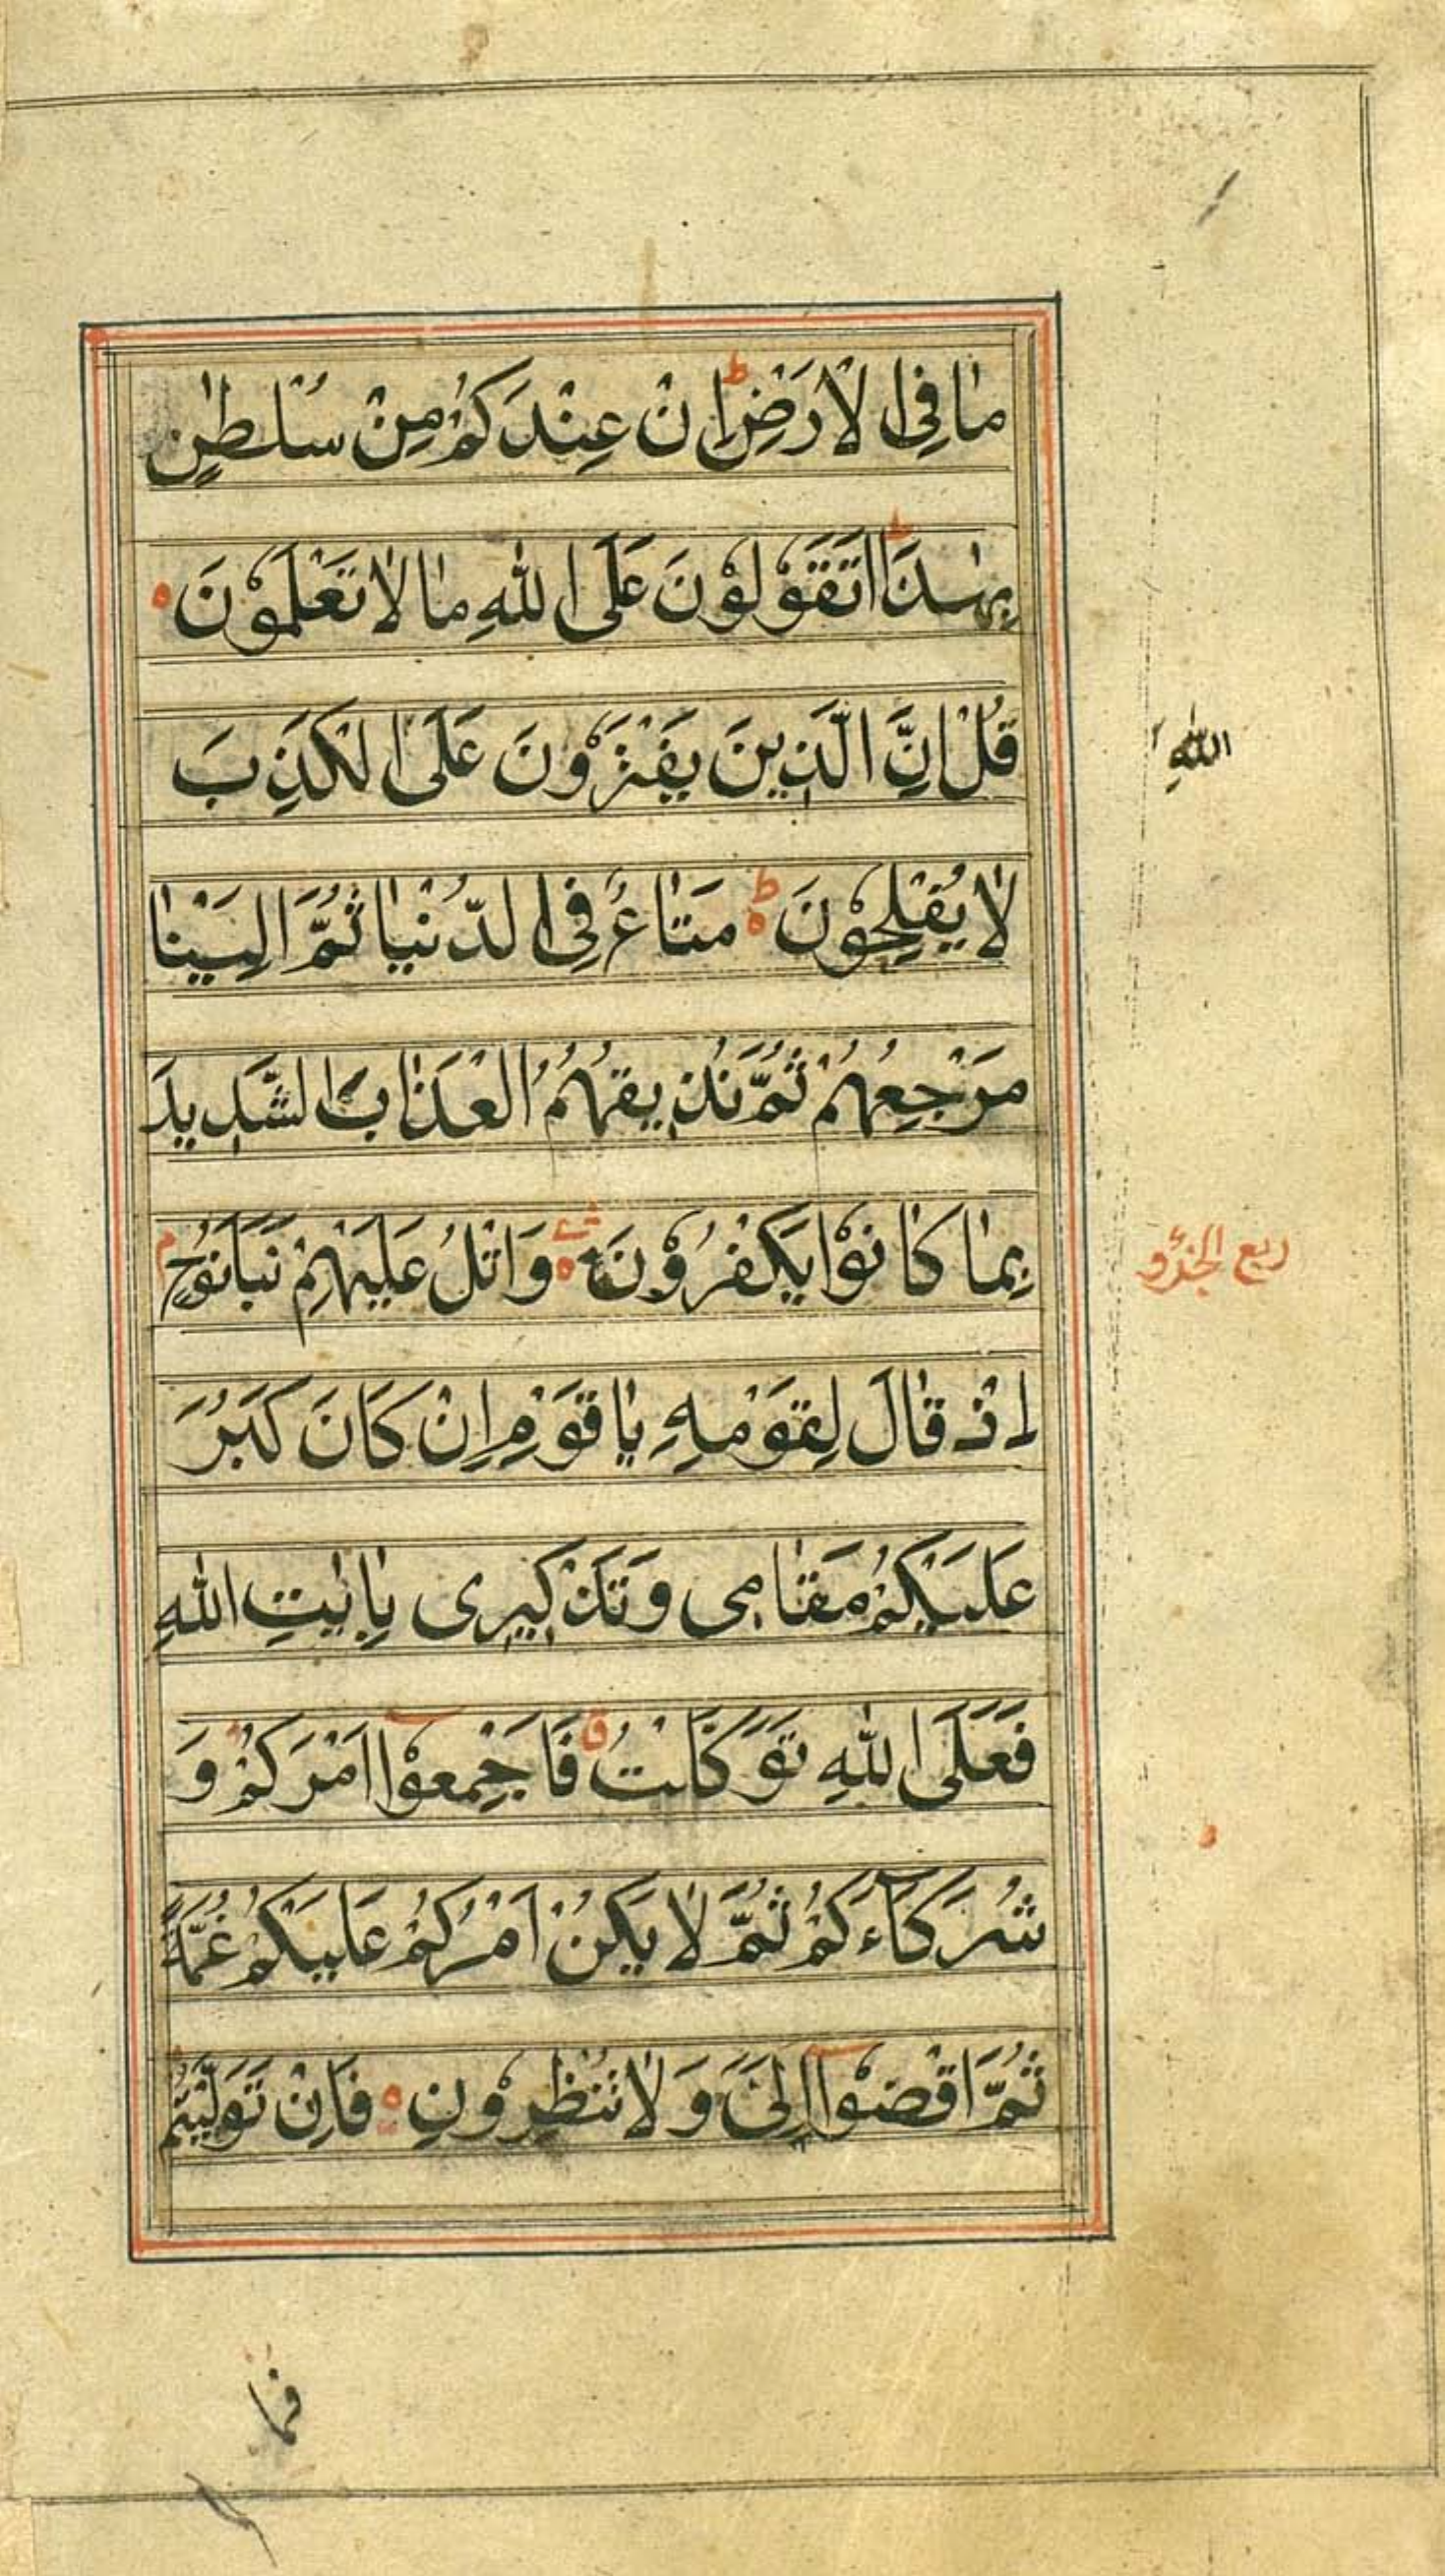 مٰا فِی الْاَرْضِ ط اِنْ عِنْدَكُمْ مِنْ سُلْطٰنٍ
بِهٰذَا ط اَتَقُوْلُوْنَ عَلَی اللّٰهِ مٰا لٰا تَعْلَمُوْنَ ه
قُلْ اِنَّ الَّذِینَ یَفْتَرُوْنَ عَلَی الْكَذِبَ
اللّٰهِ
لٰا یُفْلِحُوْنَ ه ط مَتٰاعٌ فِی الدُّنْیٰا ثُمَّ اِلَیْنٰا
مَرْجِعُهُمْ ثُمَّ نُذِیقُهُمُ الْعَذٰابَ الشَّدِیدَ
بِمٰا كٰانُوْا یَكْفُرُوْنَ ه وَاتْلُ عَلَیْهِمْ نَبَاَ نُوْحٍ م
ربع الجزؤ
اِذْ قٰالَ لِقَوْمِهِ یٰا قَوْمِ اِنْ كَانَ كَبُرَ
عَلَیْكُمْ مَقٰامِی وَتَذْكِیرِی بِاٰیٰتِ اللّٰهِ
فَعَلَی اللّٰهِ تَوَكَّلْتُ ق فَاَجْمِعُوْٓا اَمْرَكُمْ وَ
شُرَكَآءَكُمْ ثُمَّ لٰا یَكُنْ اَمْرُكُمْ عَلَیْكُمْ غُمَّةً
ثُمَّ اقْضُوْٓا اِلَیَّ وَلٰا تُنْظِرُوْنِ ه فَاِنْ تَوَلَّیْتُمْ
فما